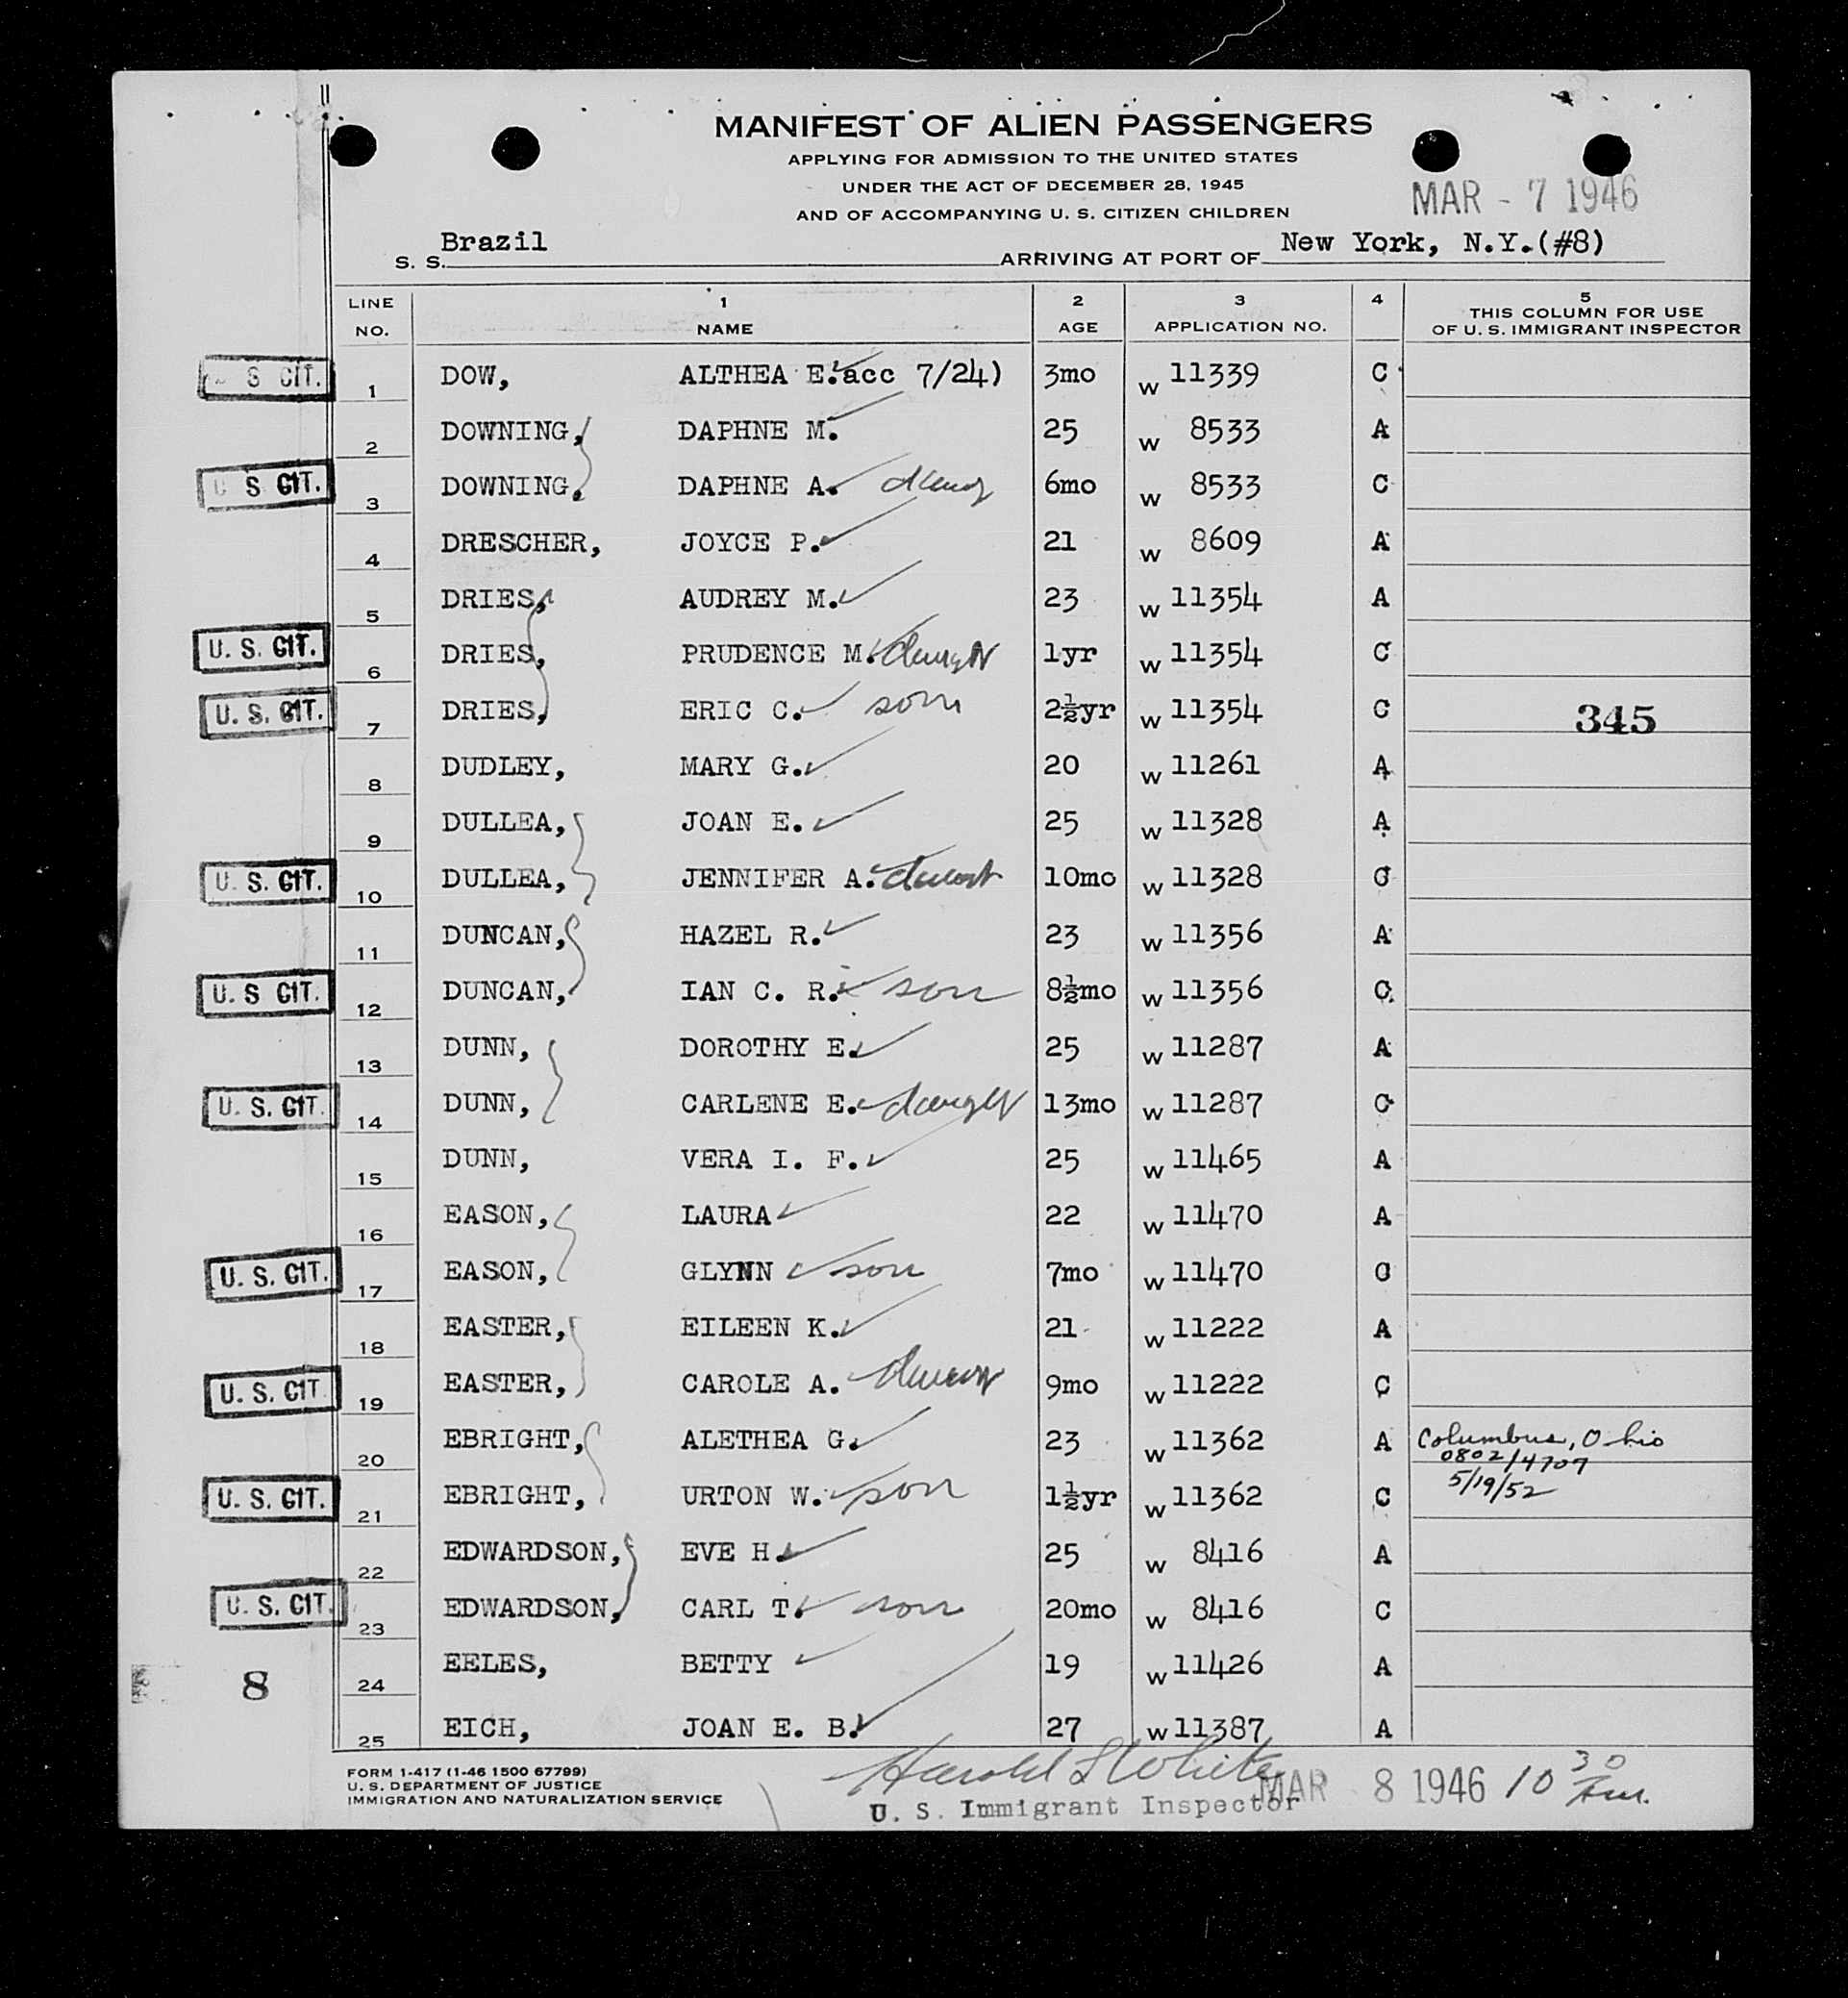 MANIFEST OF ALIEN PASSENGERS
APPLYING FOR ADMISSION TO THE UNITED STATES
UNDER THE ACT OF DECEMBER 28, 1945
AND OF ACCOMPANYING U. S. CITIZEN CHILDREN
MAR - 7 1946
S. S. Brazil ARRIVING AT PORT OF New York, N.Y.(#8)
LINE NO. 1 NAME 2 AGE 3 APPLICATION NO. 4 5 THIS COLUMN FOR USE OF U. S. IMMIGRANT INSPECTOR
S CIT. 1 DOW, ALTHEA E. acc 7/24) 3mo w 11339 C
2 DOWNING, DAPHNE M. 25 w 8533 A
U S CIT. 3 DOWNING, DAPHNE A. 6mo w 8533 C
4 DRESCHER, JOYCE P. 21 w 8609 A
5 DRIES, AUDREY M. 23 w 11354 A
U. S. CIT. 6 DRIES, PRUDENCE M. 1yr w 11354 C
U. S. CIT. 7 DRIES, ERIC C. son 2½yr w 11354 C 345
8 DUDLEY, MARY G. 20 w 11261 A
9 DULLEA, JOAN E. 25 w 11328 A
U. S. CIT. 10 DULLEA, JENNIFER A. 10mo w 11328 C
11 DUNCAN, HAZEL R. 23 w 11356 A
U. S CIT. 12 DUNCAN, IAN C. R. son 8½mo w 11356 C
13 DUNN, DOROTHY E. 25 w 11287 A
U. S. CIT. 14 DUNN, CARLENE E. 13mo w 11287 C
15 DUNN, VERA I. F. 25 w 11465 A
16 EASON, LAURA 22 w 11470 A
U. S. CIT. 17 EASON, GLYNN son 7mo w 11470 C
18 EASTER, EILEEN K. 21 w 11222 A
U. S. CIT 19 EASTER, CAROLE A. 9mo w 11222 C
20 EBRIGHT, ALETHEA G. 23 w 11362 A Columbus, Ohio
0802/4707
U. S. CIT. 21 EBRIGHT, URTON W. son 1½yr w 11362 C 5/19/52
22 EDWARDSON, EVE H. 25 w 8416 A
U. S. CIT. 23 EDWARDSON, CARL T. son 20mo w 8416 C
8 24 EELES, BETTY 19 w 11426 A
25 EICH, JOAN E. B. 27 w 11387 A
FORM 1-417 (1-46 1500 67799)
U. S. DEPARTMENT OF JUSTICE
IMMIGRATION AND NATURALIZATION SERVICE
Harold S White
U. S. Immigrant Inspector
MAR 8 1946 10 30 Am.